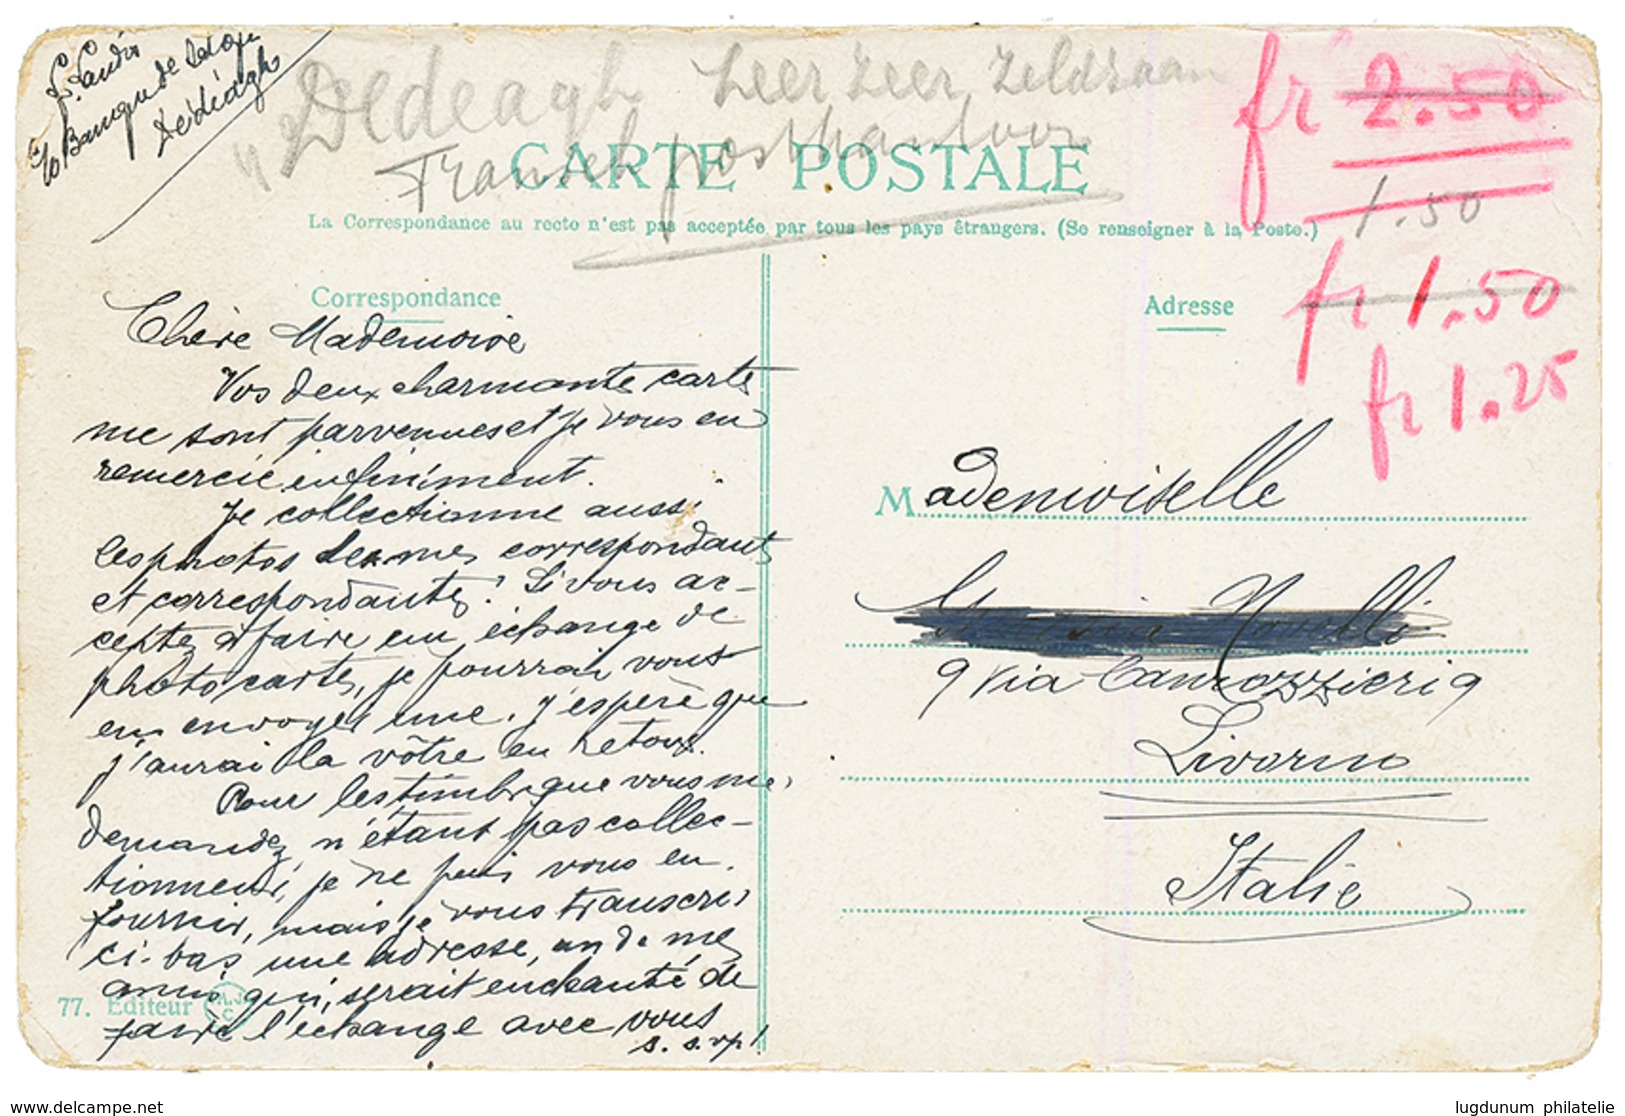 c/o Banque de Salonique
Dédéagh
"Dedeagh Zeer Zeer Zeldzaam
Fransch postkantoor
CARTE POSTALE
La Correspondance au recto n'est pas acceptée par tous les pays étrangers. (Se renseigner à la Poste.)
fr 2.50
1.50
fr 1.50
fr 1.25
Correspondance
Chère Mademoise
Vos deux charmantes cartes
me sont parvenues et je vous en
remercie infiniment.
Je collectionne aussi
les photos de mes correspondants
et correspondantes! Si vous ac-
ceptez à faire un échange de
photo cartes, je pourrai vous
en envoyer une. J'espère que
j'aurai la vôtre en retour.
Pour les timbres que vous me
demandez, n'étant pas collec-
tionneur, je ne puis vous en
fournir, mais je vous transcris
ci-bas une adresse, un de mes
amis qui serait enchanté de
faire l'échange avec vous
s. s. vp!
77. Editeur M.J.C
Adresse
Mademoiselle
9 Via Camozzieri 9
Livorno
Italie
www.delcampe.net
lugdunum philatelie